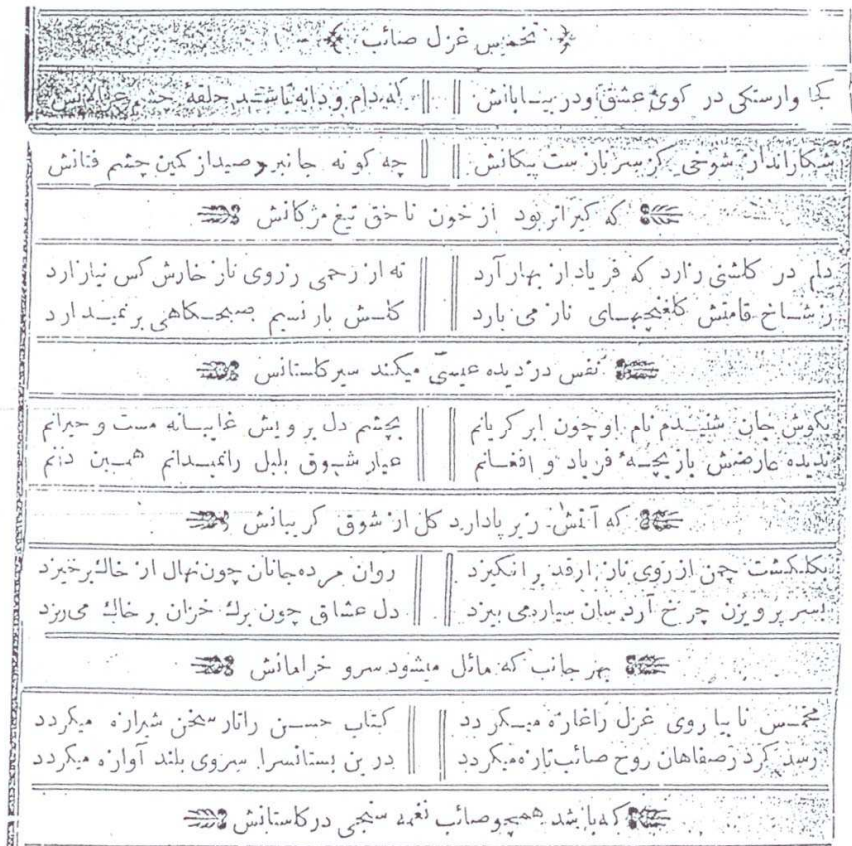 تخمیس غزل صائب
کجا وارستکی در کوی عشق اودر بیابانش که دام ودانه باشد حلقهٔ چشم غزالانش
شکارانداز شوخی کز سر نازست پیکانش چه کونه جانبرد صیداز کمین چشم فتانش
که کیراتر بود از خون ناحق تیغ مژکانش
دلم در کلشنی زارد که فریاد از بهار آرد نه از رحمی زروی ناز خارش کس نیازارد
زشاخ قامتش کلغنچهای ناز می بارد کلش بار نسیم صبحکاهی برنمیدارد
نفس دزدیده عیسی میکند سیر کلستانش
بکوش جان شنیدم نام اوچون ابر کریانم بچشم دل برویش غایبانه مست وحیرانم
ندیده عارضش بازیچهٔ فریاد و افغانم عیار شوق بلبل رانمیدانم همین دانم
که آتش زیر پادارد کل از شوق کریبانش
بکلکشت چمن ازروی ناز ارقد بر انکیزد روان مرده جانان چون نهال از خاك برخیزد
بسر پرویزن چرخ آرد سان سیارمی بیزد دل عشاق چون برك خزان بر خاك میریزد
بهر جانب که مائل میشود سرو خرامانش
مخمس تا بیا روی غزل راغازه میکردد کتاب حسن راتار سخن شیرازه میکردد
رسد کرد زصفاهان روح صائب تازه میکردد درین بستانسرا سروی بلند آوازه میکردد
که باشد همچوصائب نغمه سنجی درکلستانش